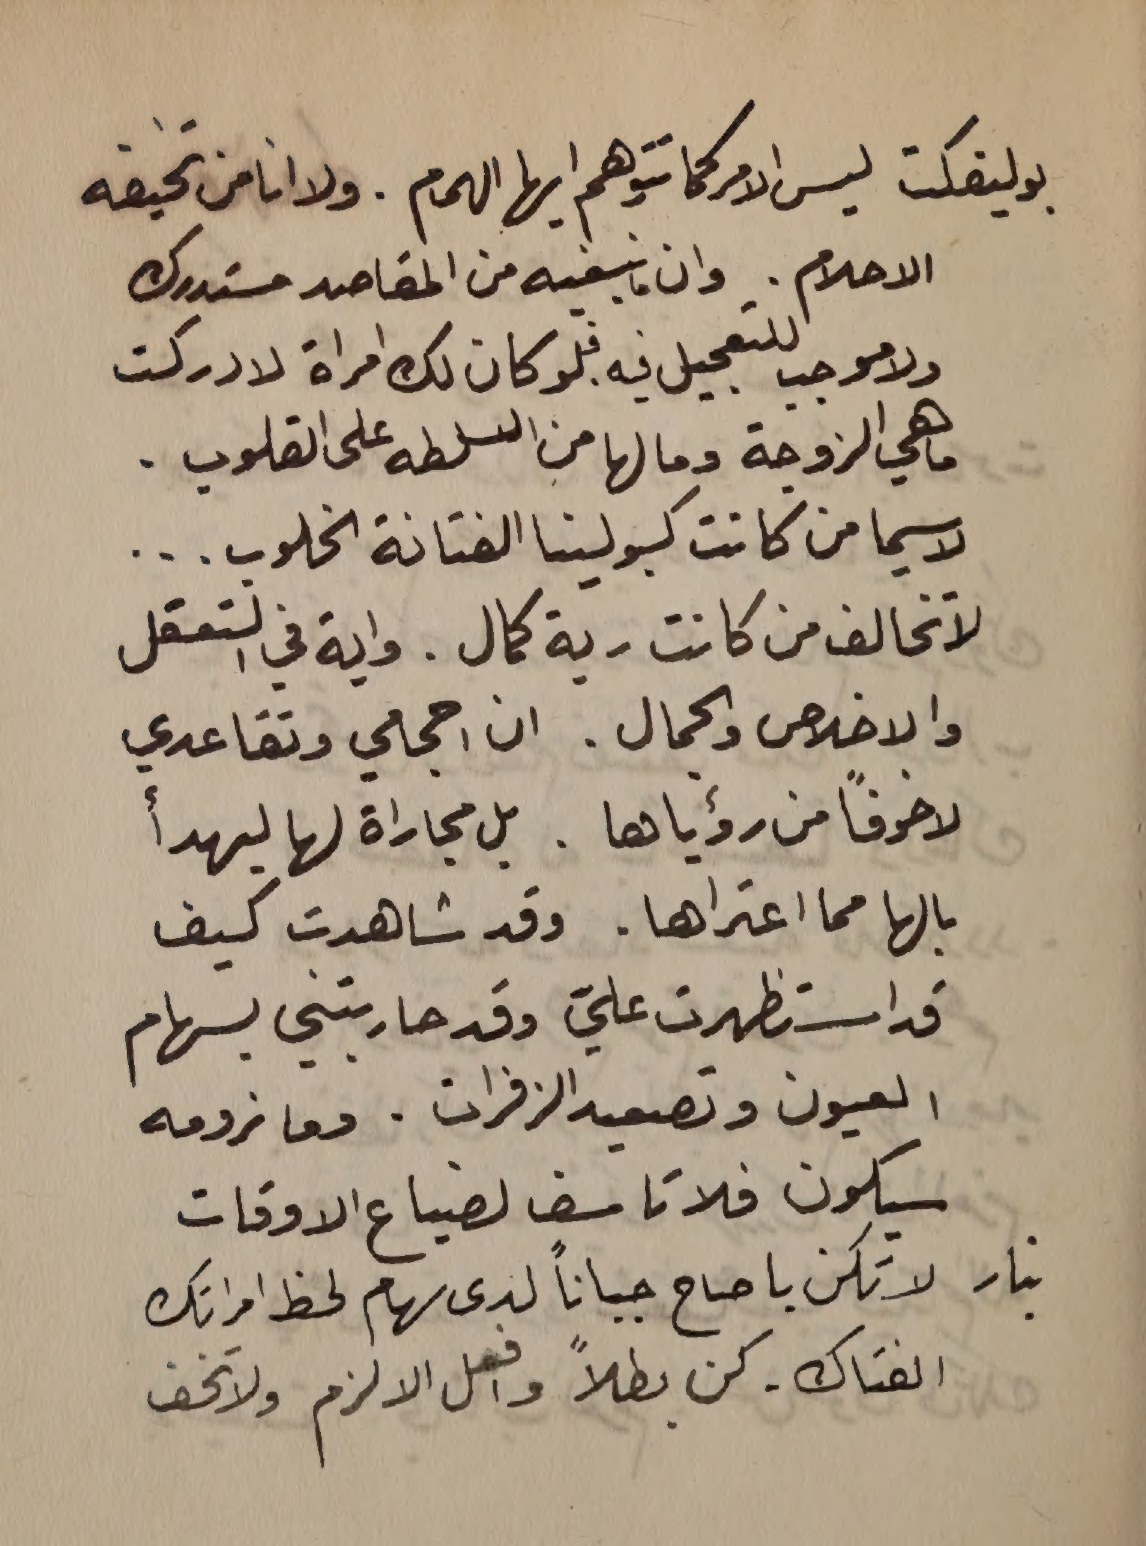 بوليفكت ليس الامر كما تتوهم ايها الهمام . ولا انا من تخيفه
الاحلام . وان ما نبغيه من المقاصد سندرك
ولا موجب للتعجيل فيه فلو كان لك امراة لادركت
ما هي الزوجة وما لها من السلطه على القلوب .
لا سيما من كانت كبولينا الفتانة الخلوب . . .
لا تخالف من كانت ربة كمال . واية في التعقل
والاخلاص والجمال . ان احجامي وتقاعدي
لا خوفاً من رؤياها . بل مجاراة لها ليهدأ
بالها مما اعتراها . وقد شاهدت كيف
قد استظهرت عليّ وقد حاربتني بسهام
العيون وتصعيد الزفرات . وما نرومه
سيكون فلا تاسف لضياع الاوقات
نيار لا تكن يا صاح جباناً لدى سهام لحظ امراتك
الفتاك . كن بطلاً وافعل الالزم ولا تخف